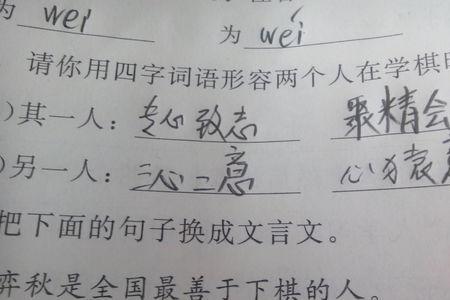 为 wei 为 wéi
请你用四字词语形容两个人在学棋
)其一人：专心致志 聚精会
)另一人：三心二意 心猿
把下面的句子换成文言文。
弈秋是全国最善于下棋的人。